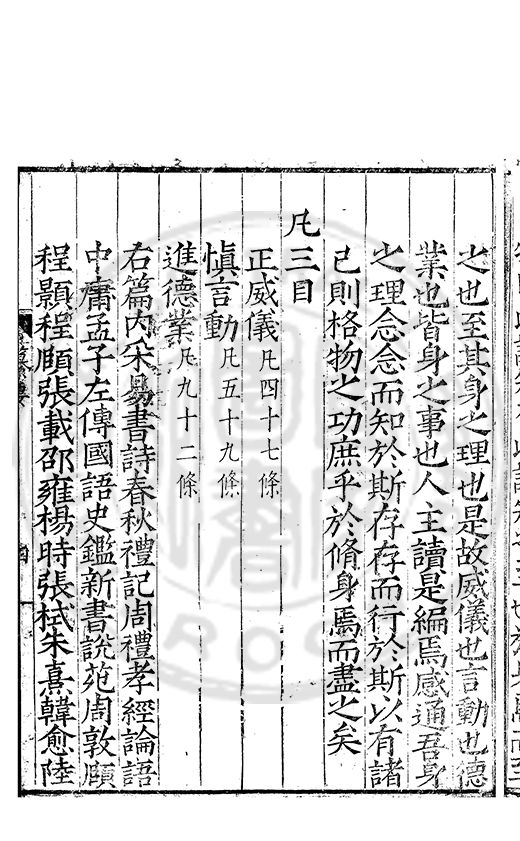 之也至其身之理也是故威儀也言動也德
業也皆身之事也人主讀是編焉感通吾身
之理念念而知於斯存存而行於斯以有諸
己則格物之功庶乎於脩身焉而盡之矣
凡三目
正威儀凡四十七條
慎言動凡五十九條
進德業凡九十二條
右篇內采易書詩春秋禮記周禮孝經論語
中庸孟子左傳國語史鑑新書說苑周敦頤
程顥程頤張載邵雍楊時張栻朱熹韓愈陸